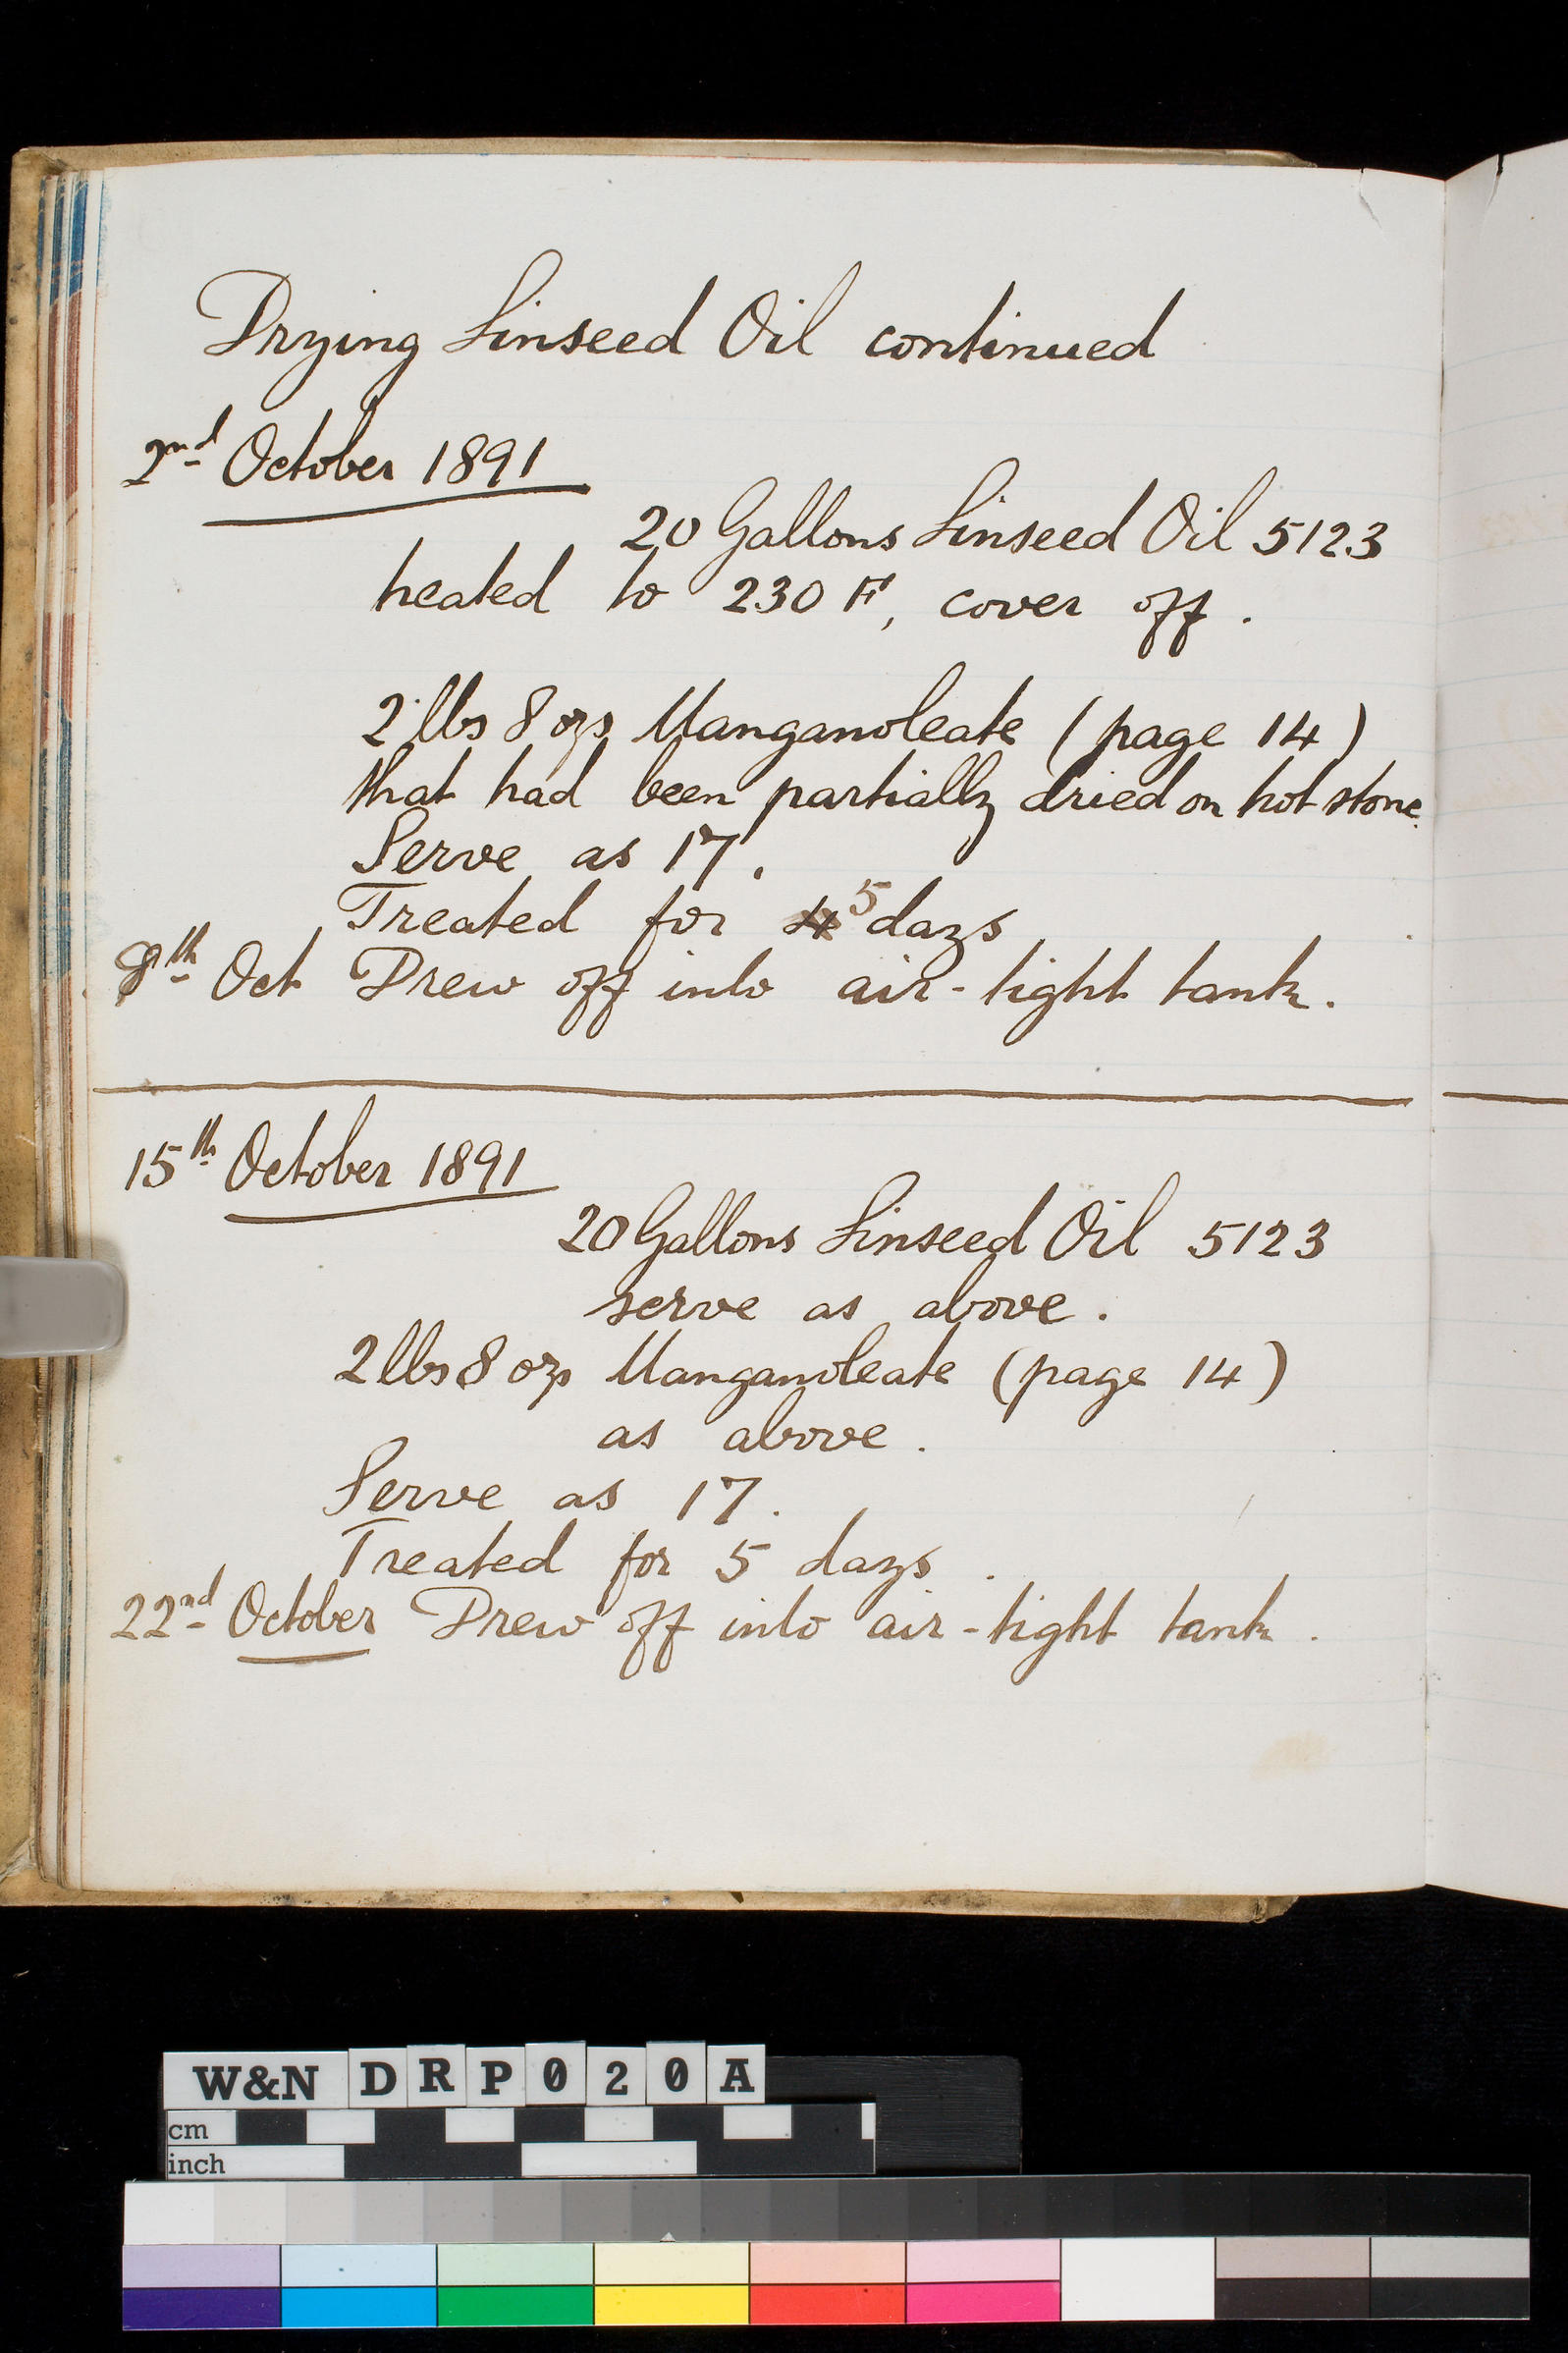 Drying Linseed Oil continued
2nd October 1891
20 Gallons Linseed Oil 5123
heated to 230 F, cover off.
2 lbs 8 ozs Manganoleate (page 14)
that had been partially dried on hot stone.
Serve as 17.
Treated for 4 5 days
8th Oct Drew off into air-tight tank.
15th October 1891
20 Gallons Linseed Oil 5123
serve as above.
2 lbs 8 ozs Manganoleate (page 14)
as above.
Serve as 17.
Treated for 5 days.
22nd October Drew off into air-tight tank.
W&N DRP020A
cm
inch